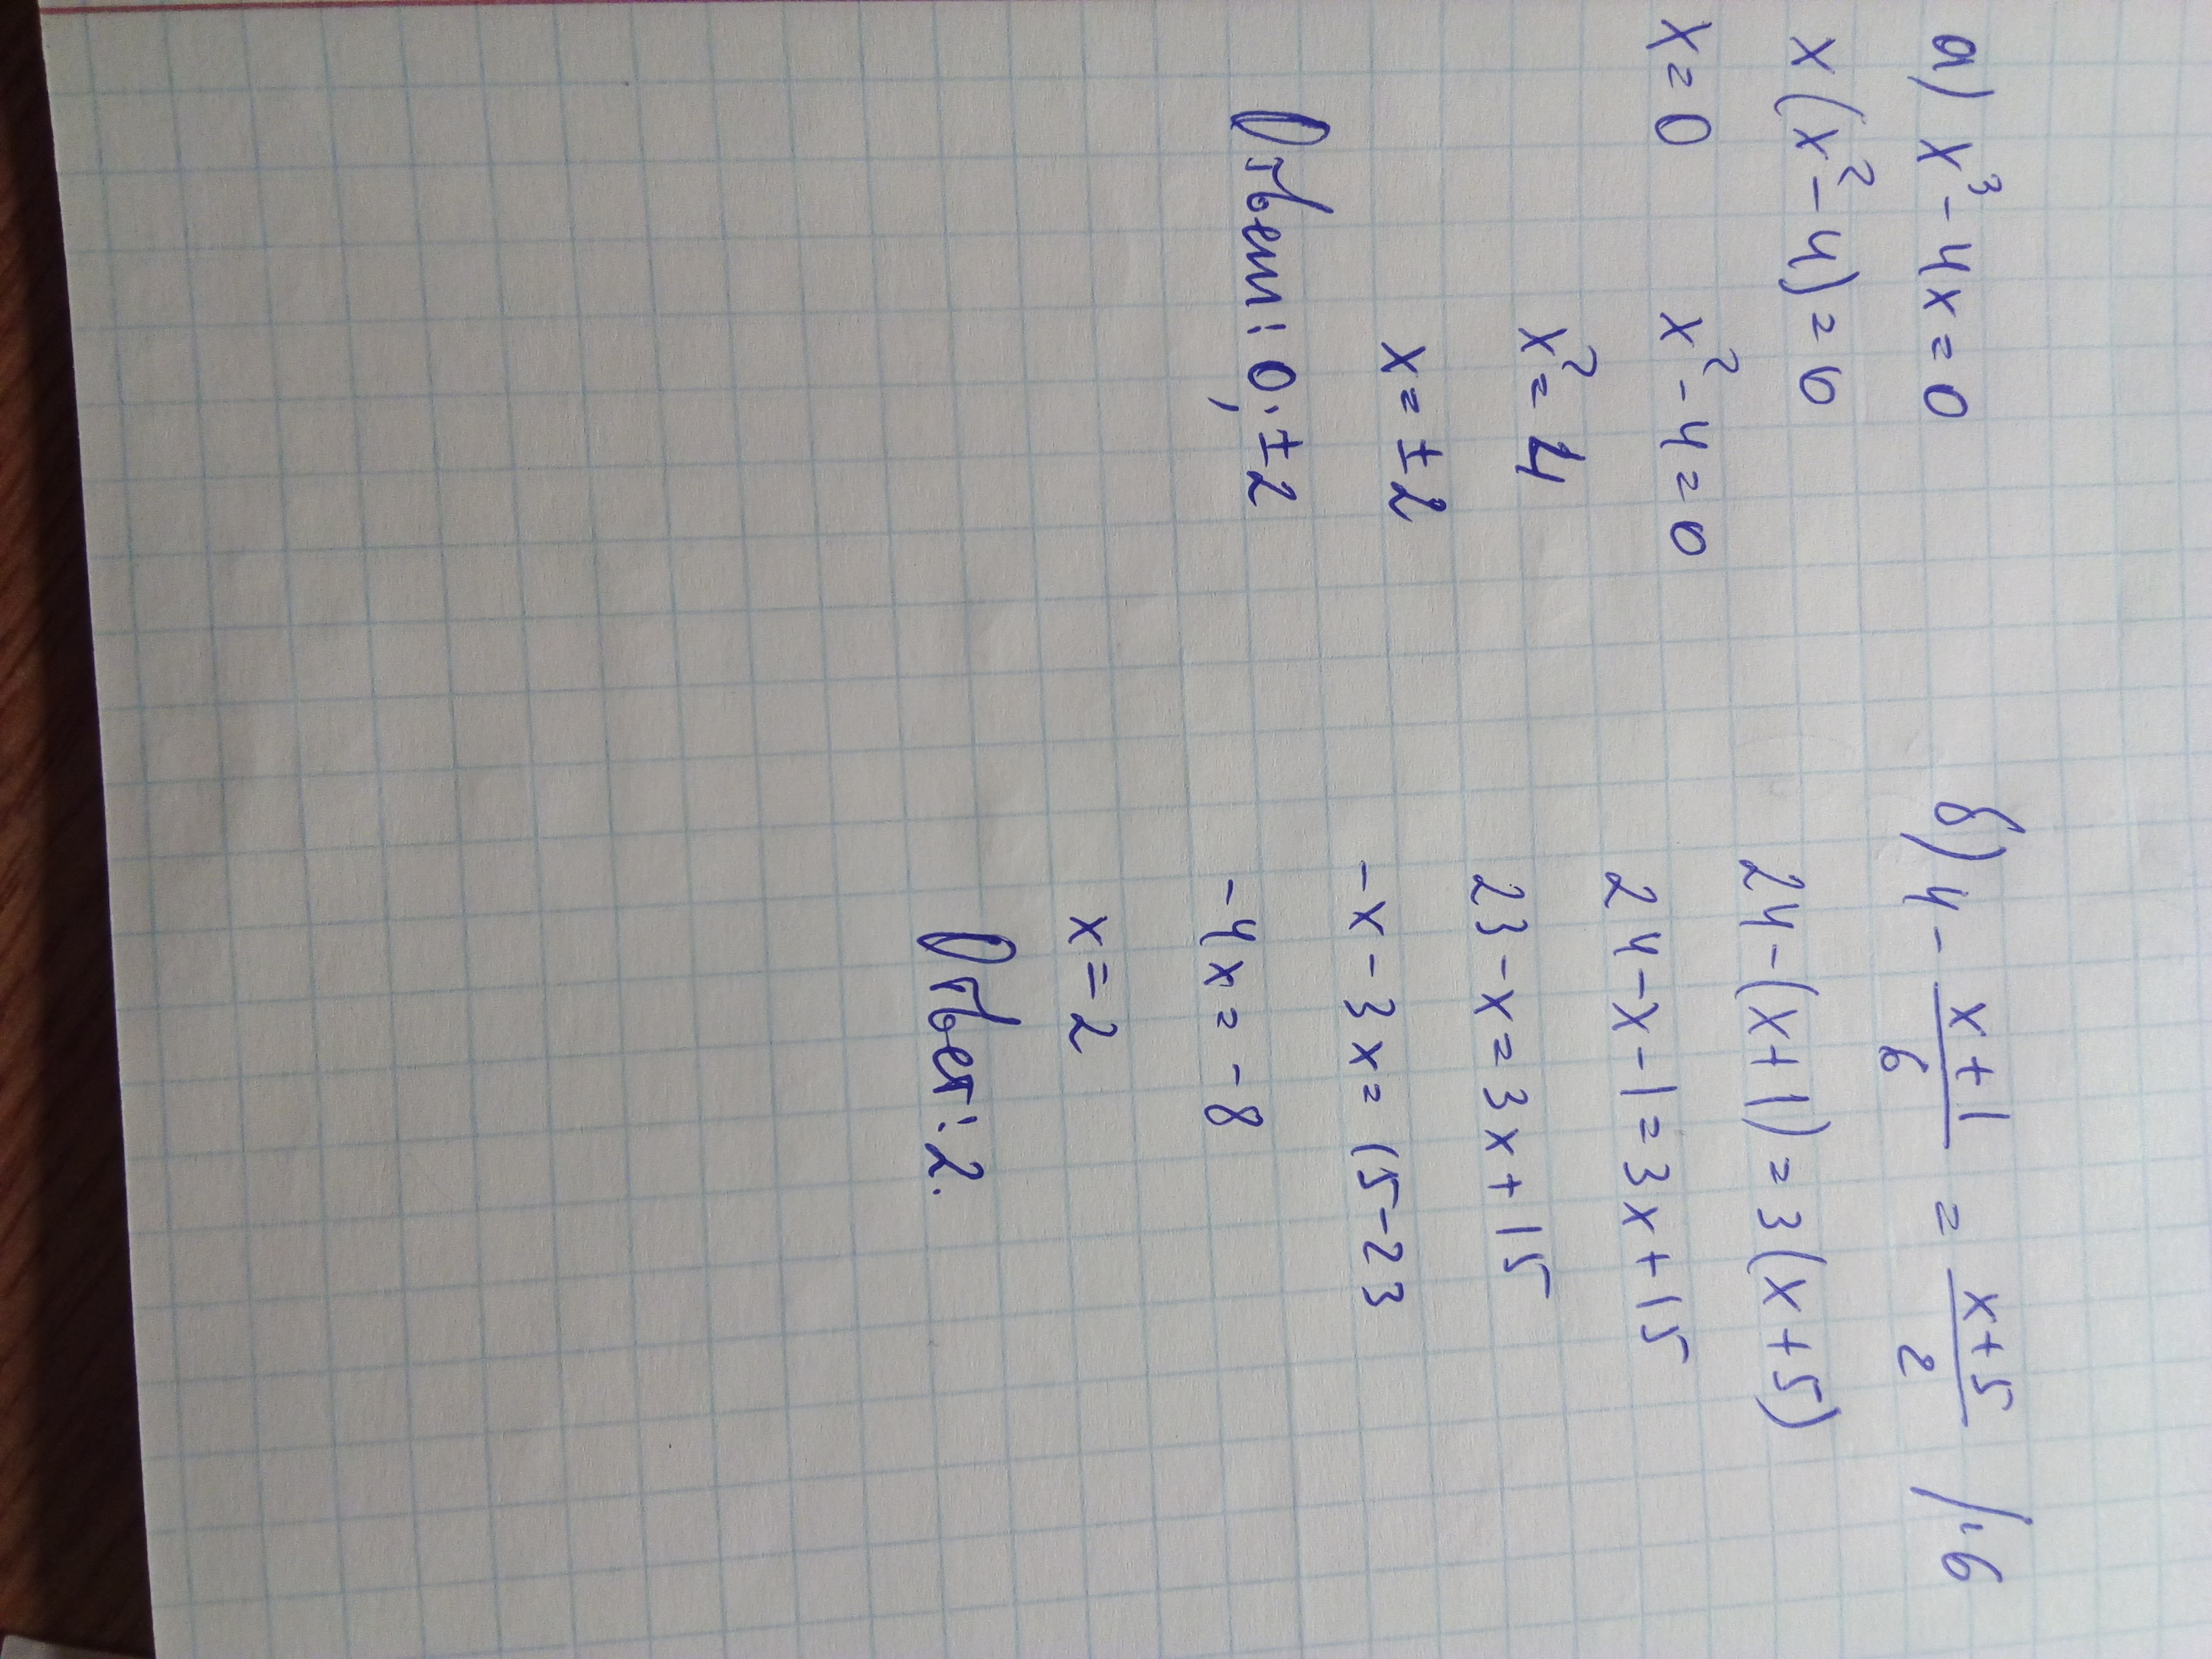 а) x³ - 4x = 0
x(x² - 4) = 0
x = 0 x² - 4 = 0
x² = 4
x = ±2
Ответ: 0; ±2
б) 4 - (x+1)/6 = (x+5)/2 /·6
24 - (x+1) = 3(x+5)
24 - x - 1 = 3x + 15
23 - x = 3x + 15
-x - 3x = 15 - 23
-4x = -8
x = 2
Ответ: 2.